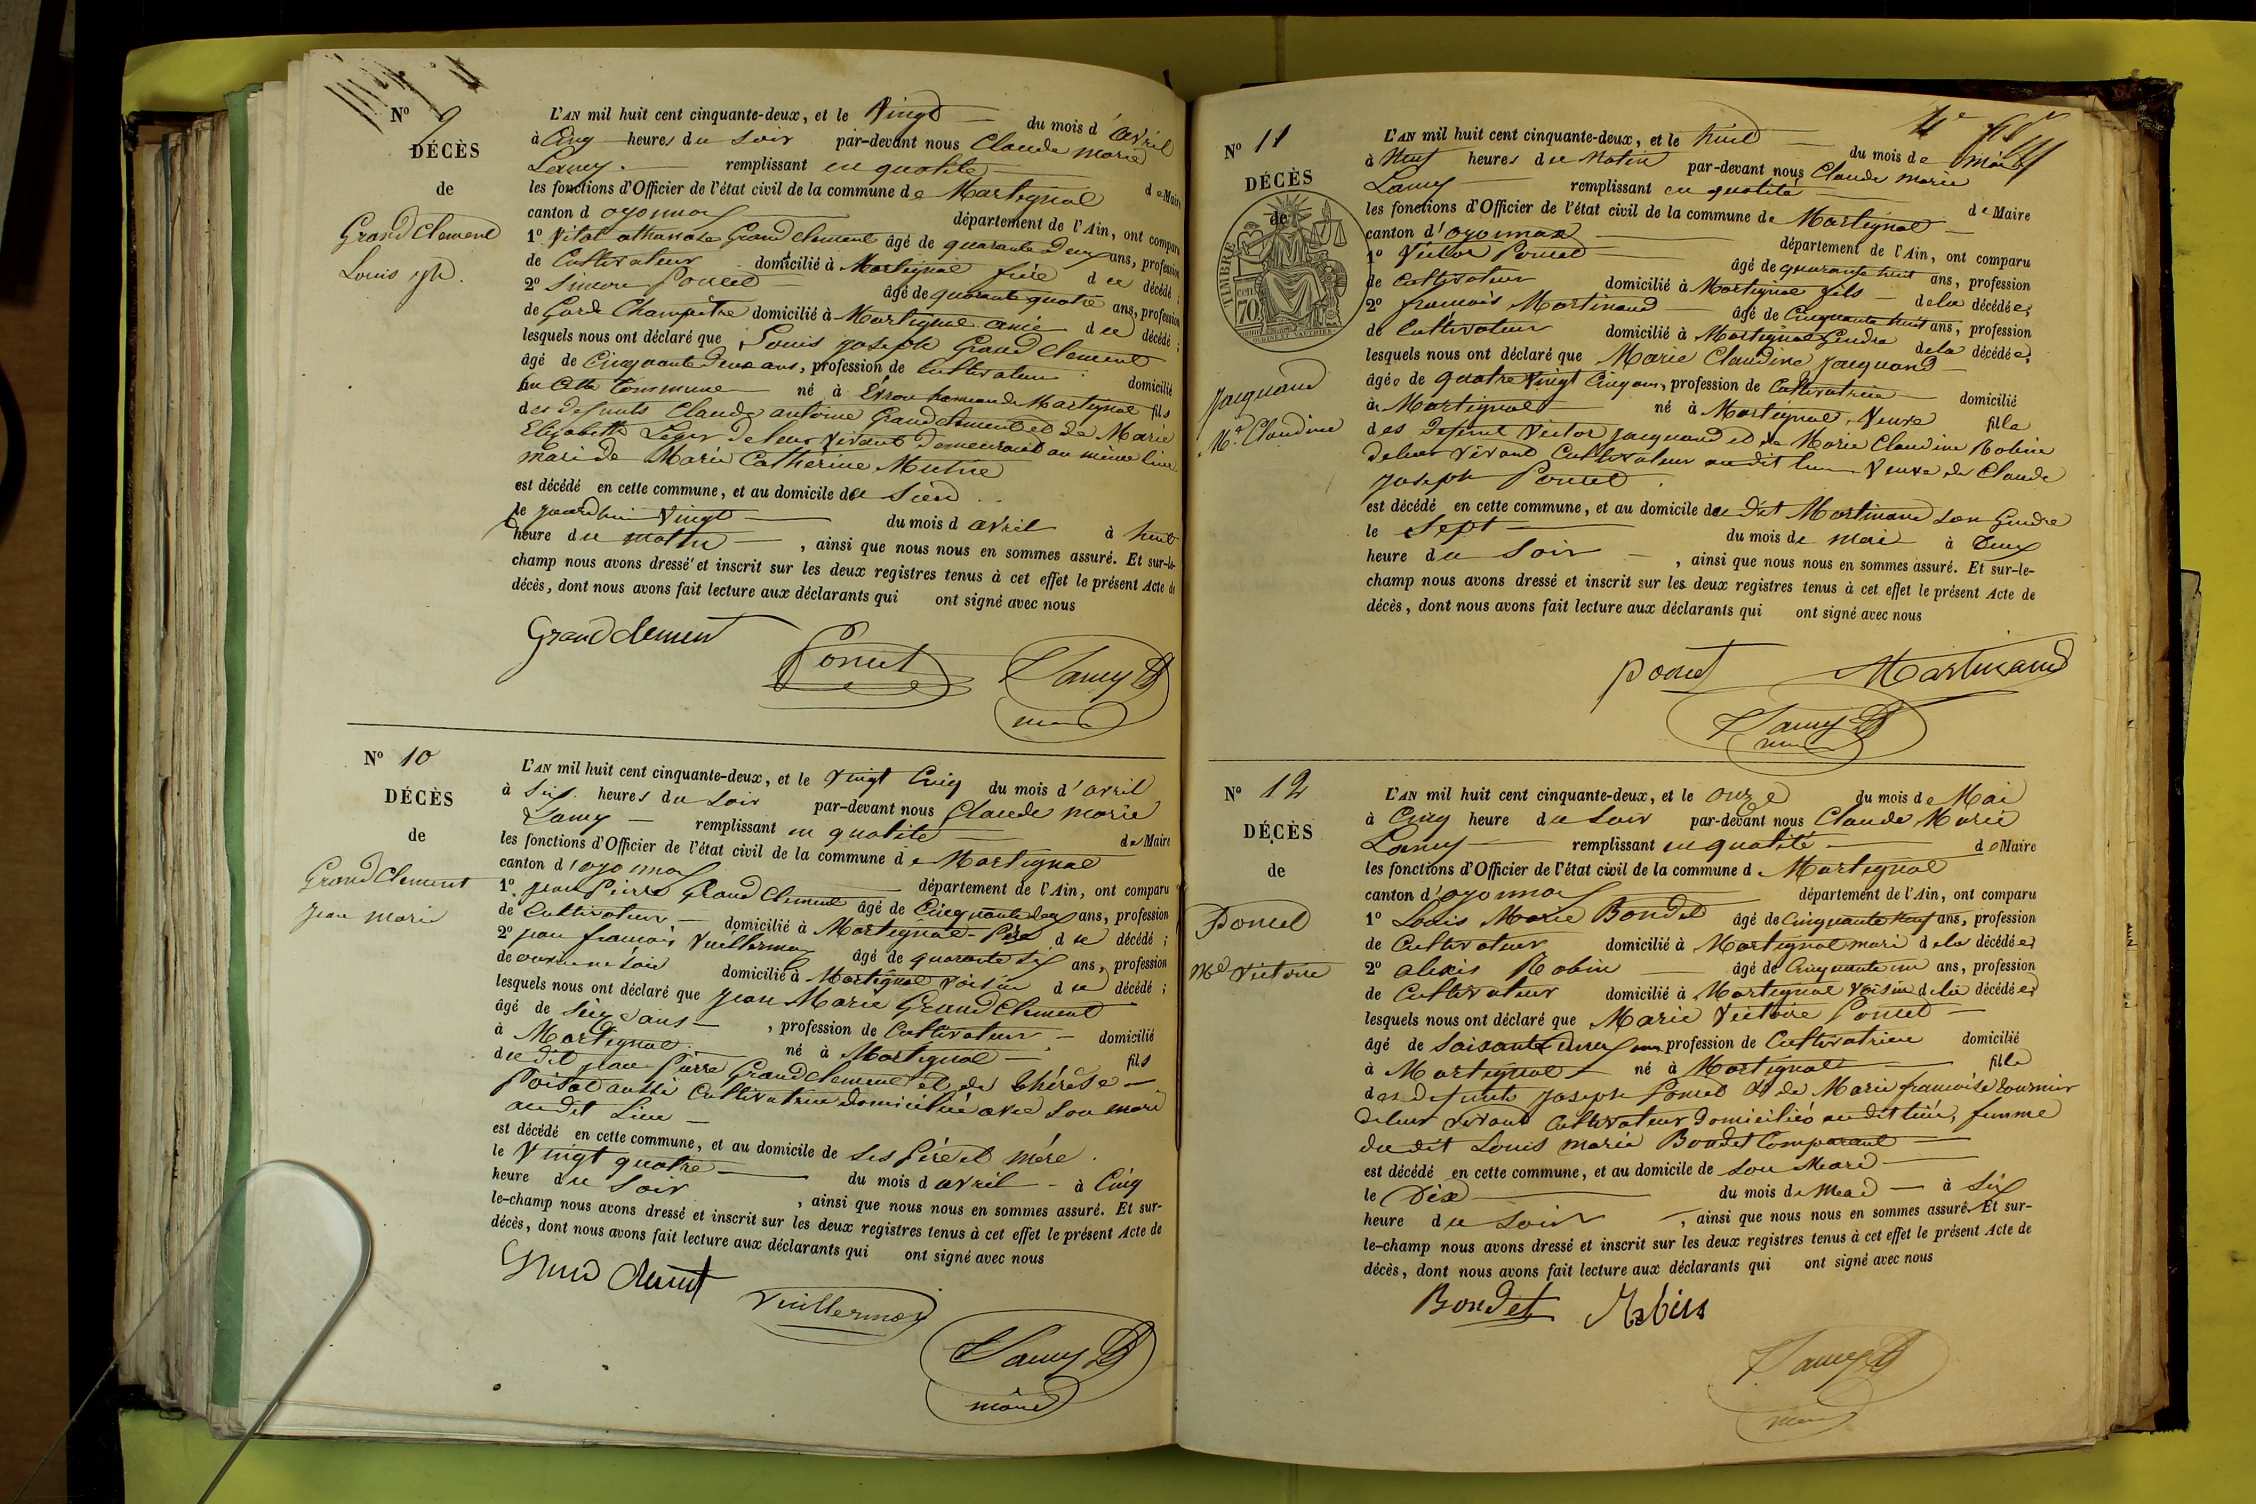 Nº 9
DÉCÈS
de
Grand Clement
Louis jph.
L'AN mil huit cent cinquante-deux, et le Vingt du mois d'avril
à Cinq heures du Soir par-devant nous Claude Marie
Lamy remplissant en qualité de Maire
les fonctions d'Officier de l'état civil de la commune de Martignat
canton d'oyonnax département de l'Ain, ont comparu
1º Vital athanase Grand Clement âgé de quarante deux ans, profession
de Cultivateur domicilié à Martignat frère du décédé ;
2º Simeon Poncet âgé de quarante quatre ans, profession
de Garde Champêtre domicilié à Martignat amie du décédé ;
lesquels nous ont déclaré que Louis joseph Grand Clement
âgé de Cinquante deux ans, profession de Cultivateur domicilié
en Cette Commune né à hameau de Martignat fils
des defunts Claude antoine Grand Clement et de Marie
Elizabeth de leur vivant demeurant au même lieu
mari de Marie Cathérine
est décédé en cette commune, et au domicile de Sien
le jourdhui Vingt du mois d avril à huit
heure du matin, ainsi que nous nous en sommes assuré. Et sur-le-
champ nous avons dressé et inscrit sur les deux registres tenus à cet effet le présent Acte de
décès, dont nous avons fait lecture aux déclarants qui ont signé avec nous
Grand Clement Poncet Lamy
maire
Nº 10
DÉCÈS
de
Grand Clement
jean marie
L'AN mil huit cent cinquante-deux, et le vingt Cinq du mois d'avril
à Six heures du Soir par-devant nous Claude marie
Lamy remplissant en qualité de Maire
les fonctions d'Officier de l'état civil de la commune de Martignat
canton d'oyonnax département de l'Ain, ont comparu
1º jean Pierre Grand Clement âgé de Cinquante deux ans, profession
de Cultivateur domicilié à Martignat Père du décédé ;
2º jean francois Vuillermoz âgé de quarante Six ans, profession
de domicilié à Martignat voisin du décédé ;
lesquels nous ont déclaré que jean Marie Grand Clement
âgé de ans, profession de Cultivateur domicilié
à Martignat né à Martignat fils
du dit jean Pierre Grand Clement et de Thérèse
aussi Cultivatrice domiciliée avec Son mari
audit Lieu
est décédé en cette commune, et au domicile de Ses Père et mère.
le Vingt quatre du mois d avril à Cinq
heure du Soir, ainsi que nous nous en sommes assuré. Et sur-
le-champ nous avons dressé et inscrit sur les deux registres tenus à cet effet le présent Acte de
décès, dont nous avons fait lecture aux déclarants qui ont signé avec nous
Grand Clement Vuillermoz
Lamy
maire
Nº 11
DÉCÈS
de
TIMBRE
70
jacquand
Mie Claudine
L'AN mil huit cent cinquante-deux, et le huit du mois de mai
à Neuf heures du Matin par-devant nous Claude Marie
Lamy remplissant en qualité de Maire
les fonctions d'Officier de l'état civil de la commune de Martignat
canton d'oyonnax département de l'Ain, ont comparu
1º Victor Poncet âgé de quarante huit ans, profession
de Cultivateur domicilié à Martignat fils de la décédée,
2º francois Martinand âgé de Cinquante huit ans, profession
de Cultivateur domicilié à Martignat Gendre de la décédée,
lesquels nous ont déclaré que Marie Claudine jacquand
âgée de quatre Vingt Cinq ans, profession de Cultivatrice domicilié
à Martignat né à Martignat, Veuve fille
des Defunt Victor jacquand et de Marie Claudine Robin
de leur vivant Cultivateur audit lieu Veuve de Claude
joseph Poncet
est décédé en cette commune, et au domicile du dit Martinand Son Gendre
le Sept du mois de mai à Deux
heure du Soir, ainsi que nous nous en sommes assuré. Et sur-le-
champ nous avons dressé et inscrit sur les deux registres tenus à cet effet le présent Acte de
décès, dont nous avons fait lecture aux déclarants qui ont signé avec nous
poncet Martinand
Lamy
maire
Nº 12
DÉCÈS
de
Poncet
Mie Victoire
L'AN mil huit cent cinquante-deux, et le onze du mois de Mai
à Cinq heure du Soir par-devant nous Claude Marie
Lamy remplissant en qualité de Maire
les fonctions d'Officier de l'état civil de la commune d Martignat
canton d'oyonnax département de l'Ain, ont comparu
1º Louis Marie Bondet âgé de Cinquante neuf ans, profession
de Cultivateur domicilié à Martignat mari de la décédée,
2º alexis Robin âgé de Cinquante un ans, profession
de Cultivateur domicilié à Martignat voisin de la décédée,
lesquels nous ont déclaré que Marie Victoire Poncet
âgé de Soixante deux ans, profession de Cultivatrice domicilié
à Martignat né à Martignat fille
des defunts joseph Poncet et de Marie francoise Tournier
de leur vivant Cultivateur domiciliés audit lieu, femme
du dit Louis marie Bondet Comparant
est décédé en cette commune, et au domicile de Son Mari
le Dix du mois de Mai à Six
heure du Soir, ainsi que nous nous en sommes assuré. Et sur-
le-champ nous avons dressé et inscrit sur les deux registres tenus à cet effet le présent Acte de
décès, dont nous avons fait lecture aux déclarants qui ont signé avec nous
Bondet Robin
Lamy
maire